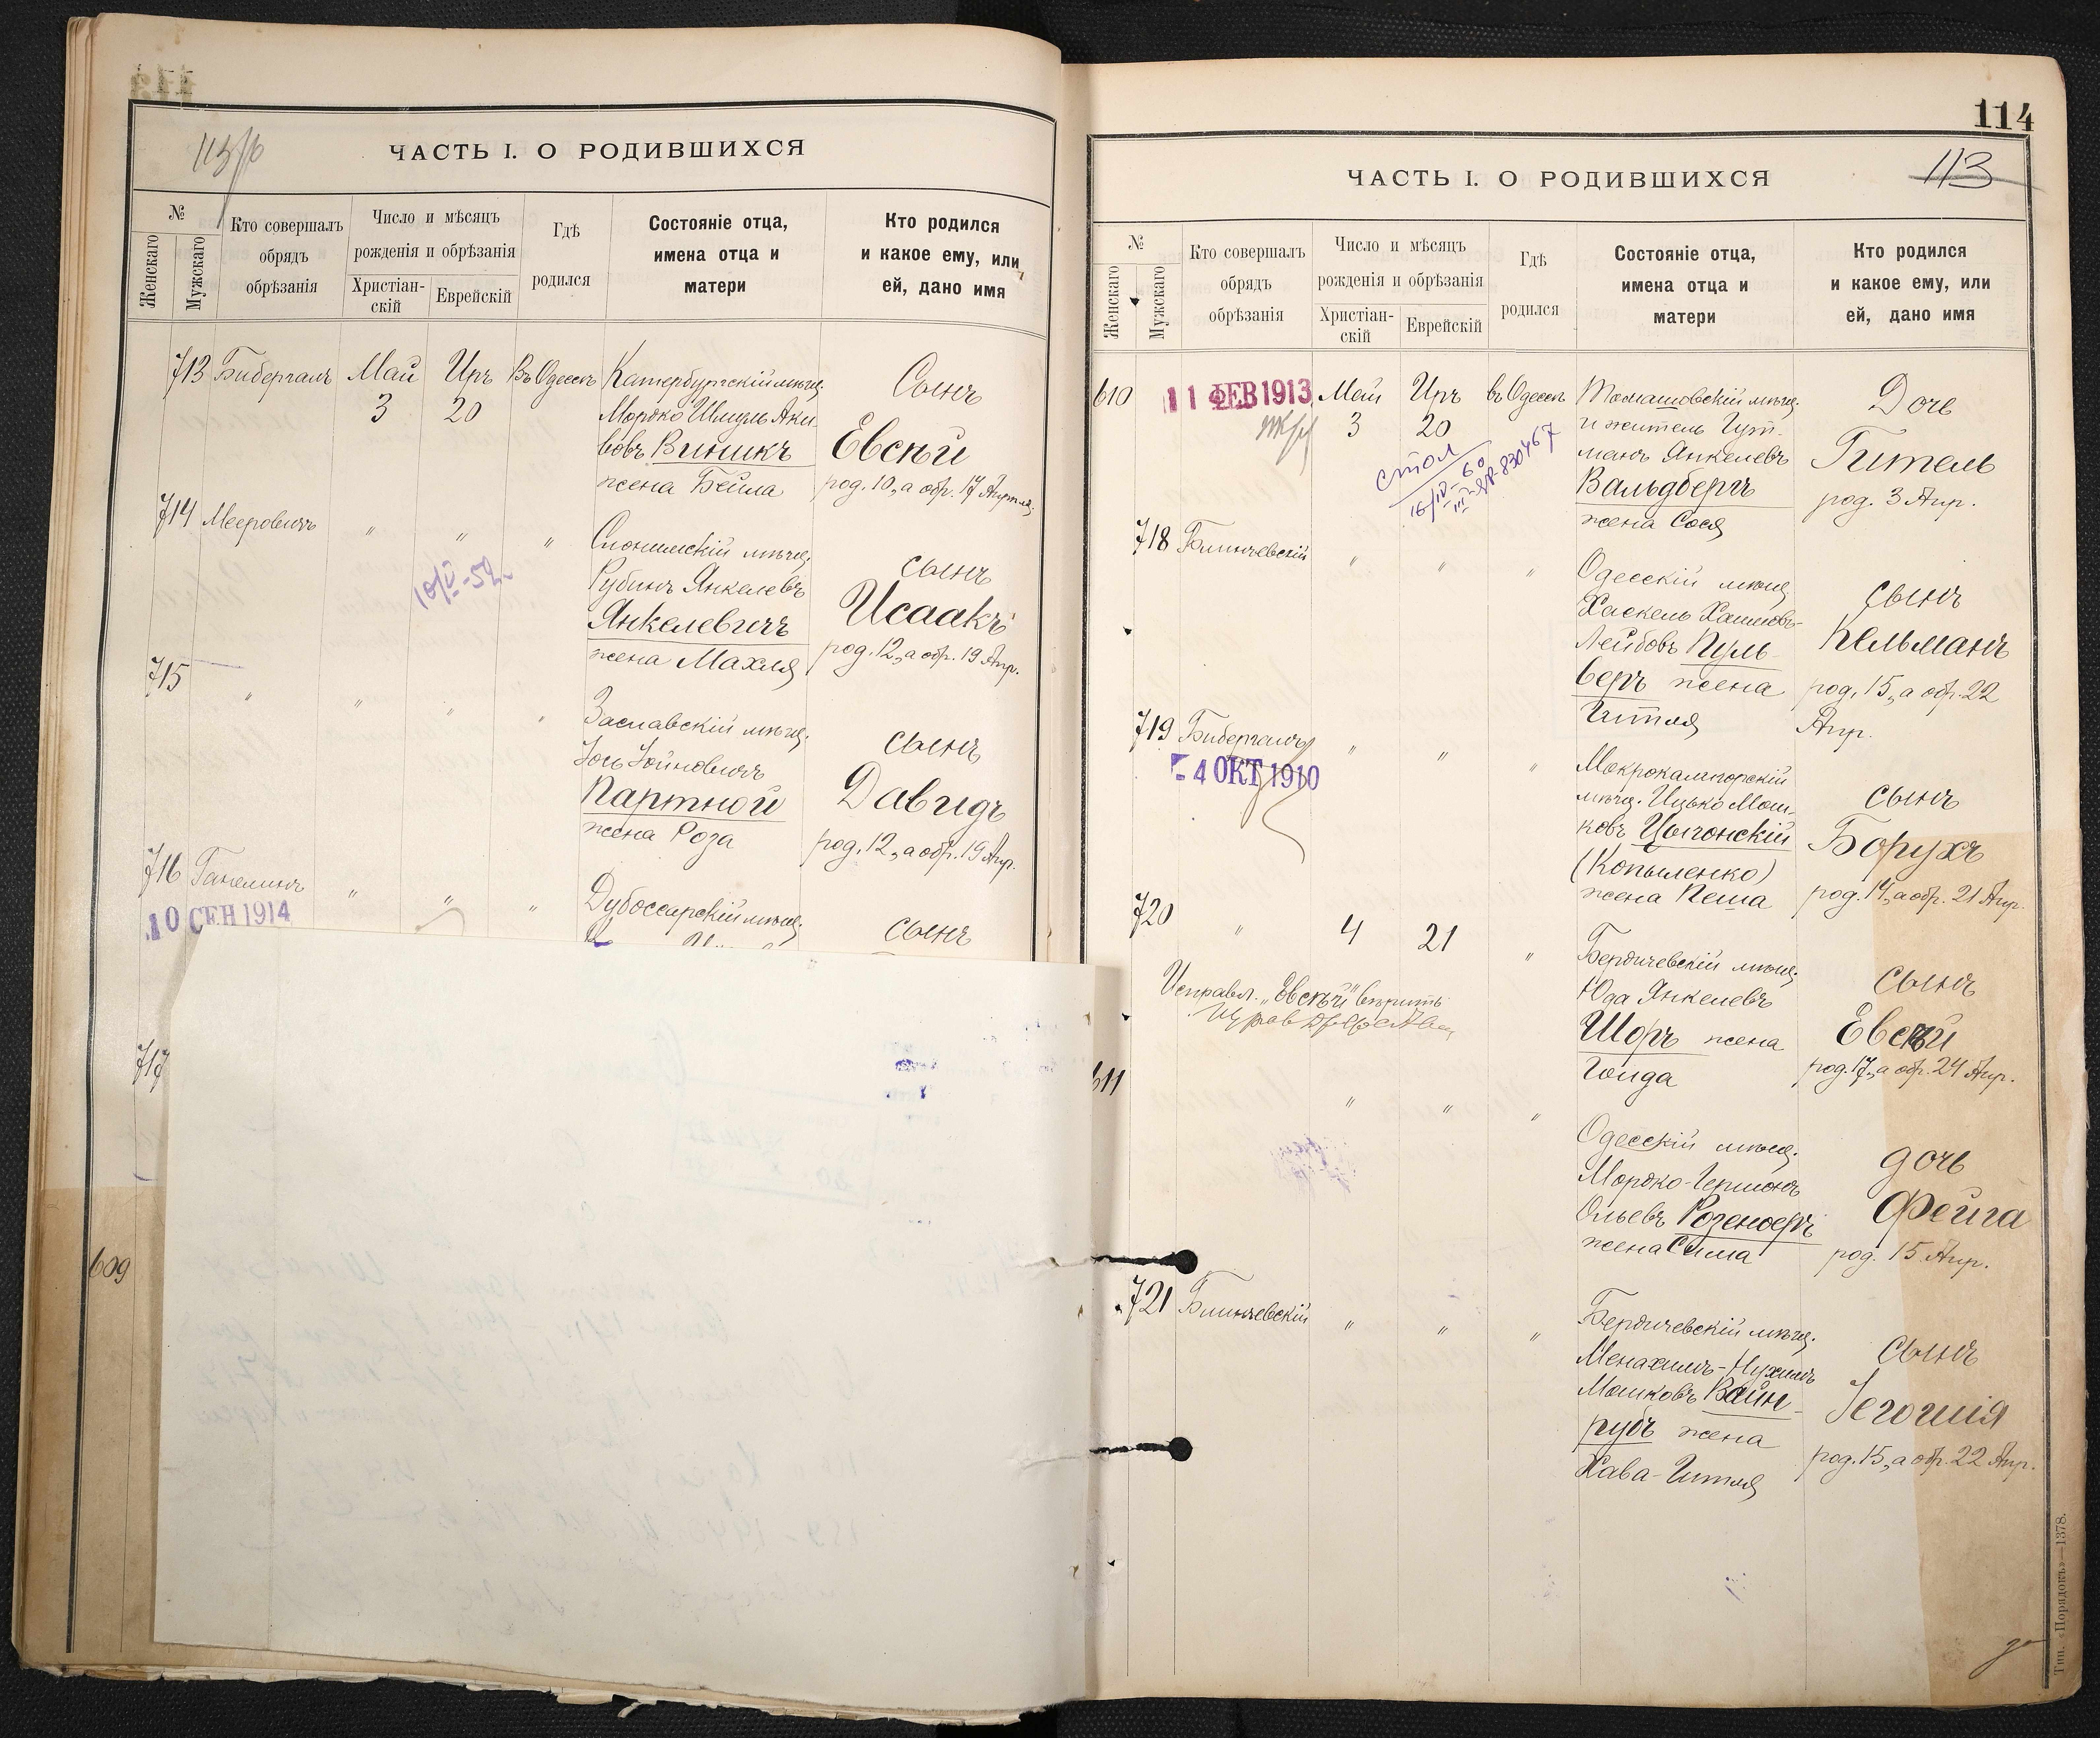 113/об
ЧАСТЬ I. О РОДИВШИХСЯ
№
Женскаго
Мужскаго
Кто совершалъ
обрядъ
обрѣзанія
Число и мѣсяцъ
рожденія и обрѣзанія
Христіан-
скій
Еврейскій
Гдѣ
родился
Состояніе отца,
имена отца и
матери
Кто родился
и какое ему, или
ей, дано имя
713 Бибергалъ Май Иръ Въ Одессѣ
3 20
Катербургскій мѣщ.
Мордко Шмуль Аки-
вовъ Виникъ
жена Бейла
Сынъ
Евсѣй
род. 10, а обр. 17 Апрѣля.
714 Мееровичъ " " "
10/V-52
Слонимскій мѣщ.
Рубинъ Янкелевъ
Янкелевичъ
жена Махля
сынъ
Исаакъ
род. 12, а обр. 19 Апр.
715 " " " "
Заславскій мѣщ.
Іось Іойновичъ
Партной
жена Роза
сынъ
Давидъ
род. 12, а обр. 19 Апр.
716 Ганелинъ " " "
10 СЕН 1914
Дубоссарскій мѣщ.
сынъ
717
609
114
113
ЧАСТЬ I. О РОДИВШИХСЯ
№
Женскаго
Мужскаго
Кто совершалъ
обрядъ
обрѣзанія
Число и мѣсяцъ
рожденія и обрѣзанія
Христіан-
скій
Еврейскій
Гдѣ
родился
Состояніе отца,
имена отца и
матери
Кто родился
и какое ему, или
ей, дано имя
610 11 ФЕВ 1913 Май Иръ въ Одессѣ
3 20
стол
16/IV-60
III-ЯР-830467
Томашовскій мѣщ.
и житель Гут-
манъ Янкелевъ
Вальдбергъ
жена Сося
Дочь
Гитель
род. 3 Апр.
718 Блинчевскій " " "
Одесскій мѣщ.
Хаскель Хаимовъ-
Лейбовъ Пуль-
веръ жена
Гитля
сынъ
Кельманъ
род. 15, а обр. 22
Апр.
719 Бибергалъ " " "
- 4 ОКТ 1910
Мокрокалигорскій
мѣщ. Ицько Мош-
ковъ Цыгонскій
(Копыленко)
жена Пеша
сынъ
Борухъ
род. 14, а обр. 21 Апр.
720 " 4 21 "
Исправл. „Евсѣй" вѣрить
Бердичевскій мѣщ.
Юда Янкелевъ
Шоръ жена
Голда
сынъ
Евсѣй
род. 17, а обр. 24 Апр.
611 " " "
Одесскій мѣщ.
Мордко-Гершонъ
Ольевъ Розеноеръ
жена Сима
дочь
Фейга
род. 15 Апр.
721 Блинчевскій " " "
Бердичевскій мѣщ.
Менахимъ-Нухимъ
Мошковъ Вайн-
рубъ жена
Хава-Гитля
сынъ
Іегошія
род. 15, а обр. 22 Апр.
Тип. «Порядокъ»—1378.